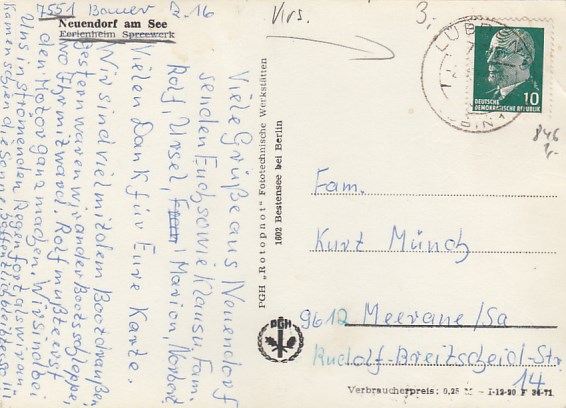 7551 Bauer Nr. 16
Neuendorf am See
Ferienheim Spreewerk
Vrs.
3,-
Viele Grüße aus Neuendorf
senden Euch sowie Klaus u. Fam.
Rolf, Ursel, Marion,
Vielen Dank für Eure Karte.
Wir sind viel mit dem Boot draußen
gestern waren wir an der Bootsschleppe,
wo Ihr mit ward. Rolf mußte erst
den Motor ganz machen. Wir sind bei
uns in strömenden Regen fort als wir an-
kamen schien die Sonne.
PGH „Rotophot" Fototechnische Werkstätten
1602 Bestensee bei Berlin
PGH
LÜBBEN
DEUTSCHE
DEMOKRATISCHE REPUBLIK
10
846
Fam.
Kurt Münch
9612 Meerane/Sa
Rudolf-Breitscheid-Str
14
Verbraucherpreis: 0,25 M - I-12-90 F 94-71